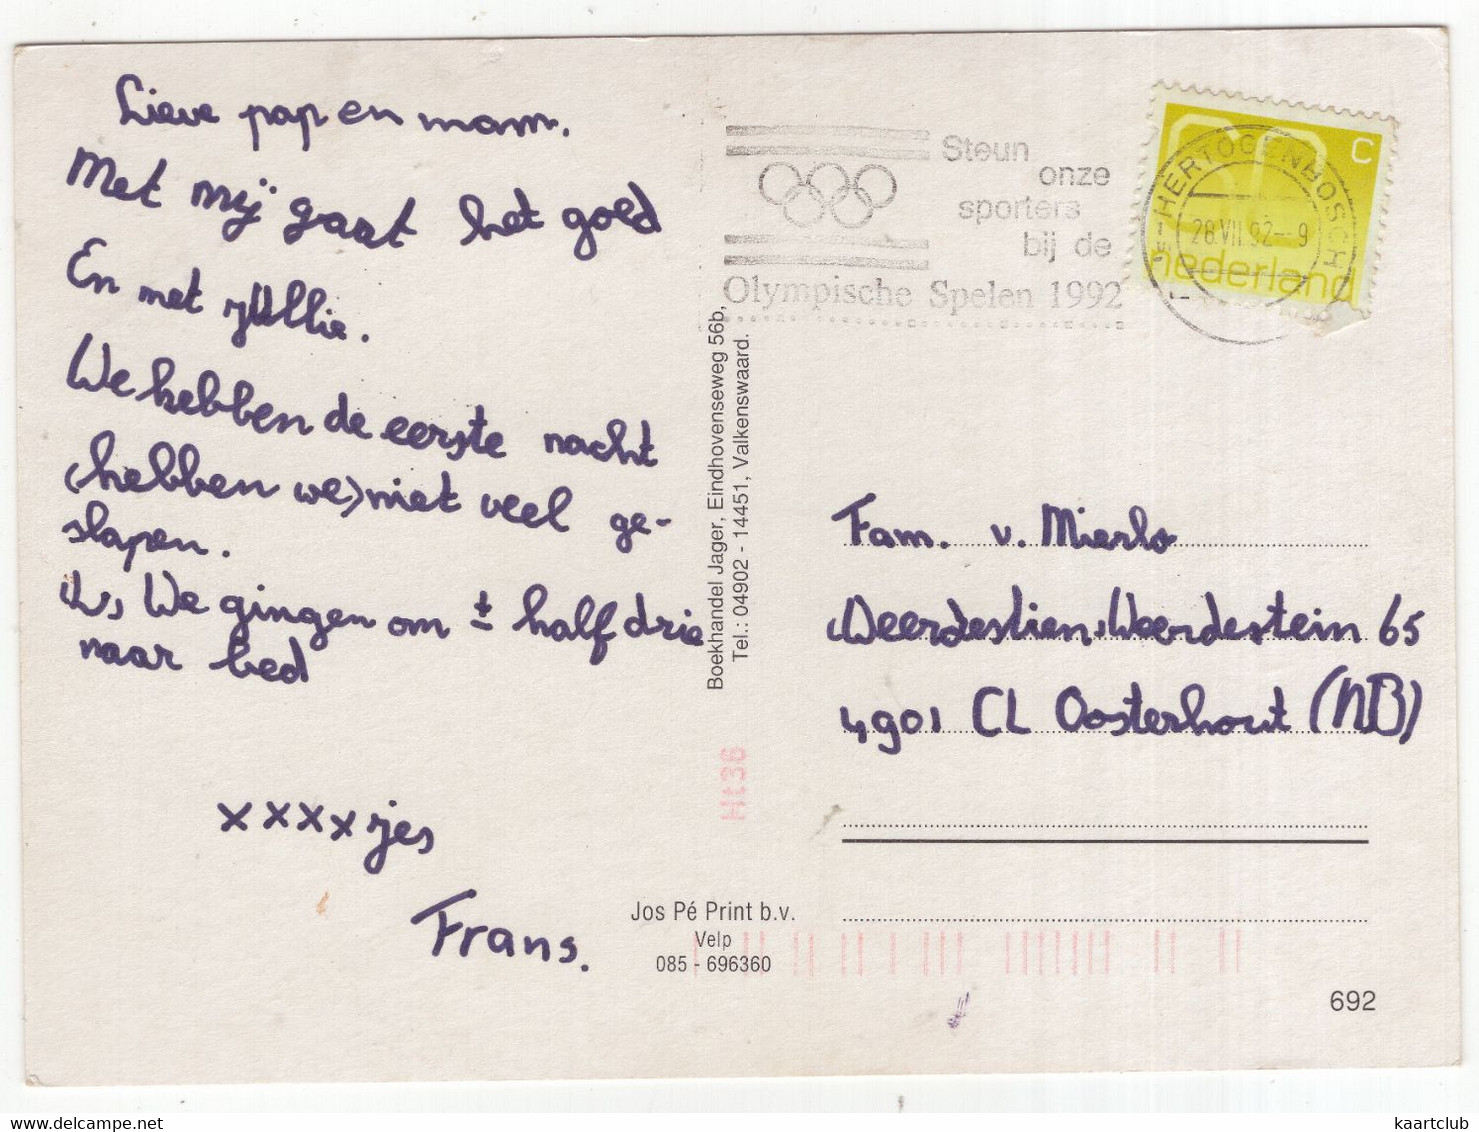 Lieve pap en mam.
Met mij gaat het goed
En met jullie.
We hebben de eerste nacht
(hebben we) niet veel ge-
slapen.
We gingen om ± half drie
naar bed
xxxxjes
Frans.
Boekhandel Jager, Eindhovenseweg 56b,
Tel.: 04902 - 14451, Valkenswaard.
Ht36
Jos Pé Print b.v.
Velp
085 - 696360
Steun
onze
sporters
bij de
Olympische Spelen 1992
's-HERTOGENBOSCH
28.VII.92--9
60 C
nederland
Fam. v. Mierlo
(Weerdestien) Weerdestein 65
4901 CL Oosterhout (NB)
692
kaartclub